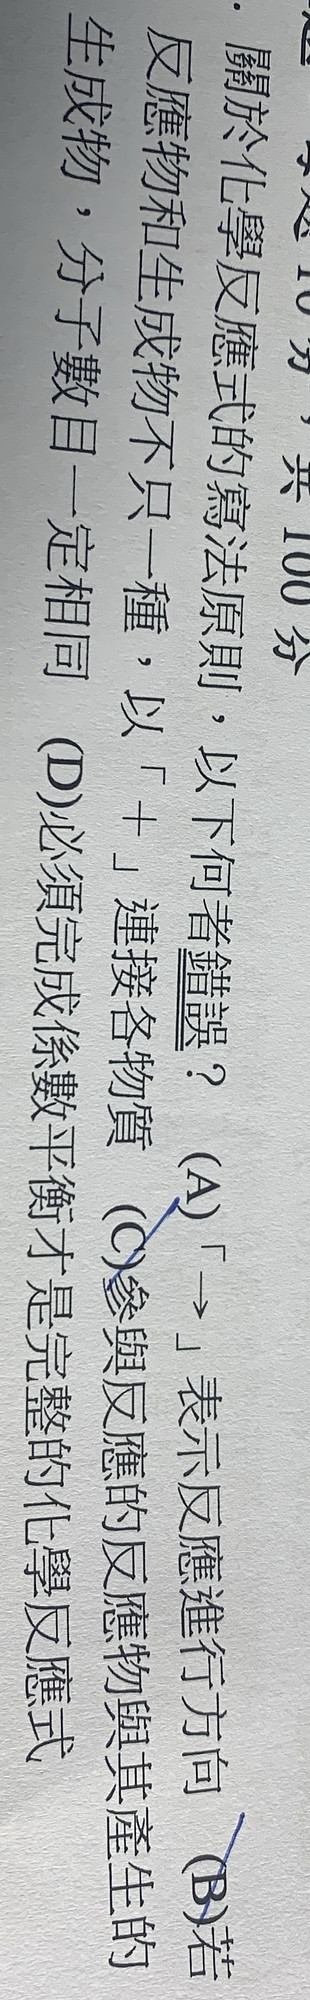 10分，共100分
．關於化學反應式的寫法原則，以下何者錯誤？ (A)「→」表示反應進行方向 (B)若
反應物和生成物不只一種，以「＋」連接各物質 (C)參與反應的反應物與其產生的
生成物，分子數目一定相同 (D)必須完成係數平衡才是完整的化學反應式